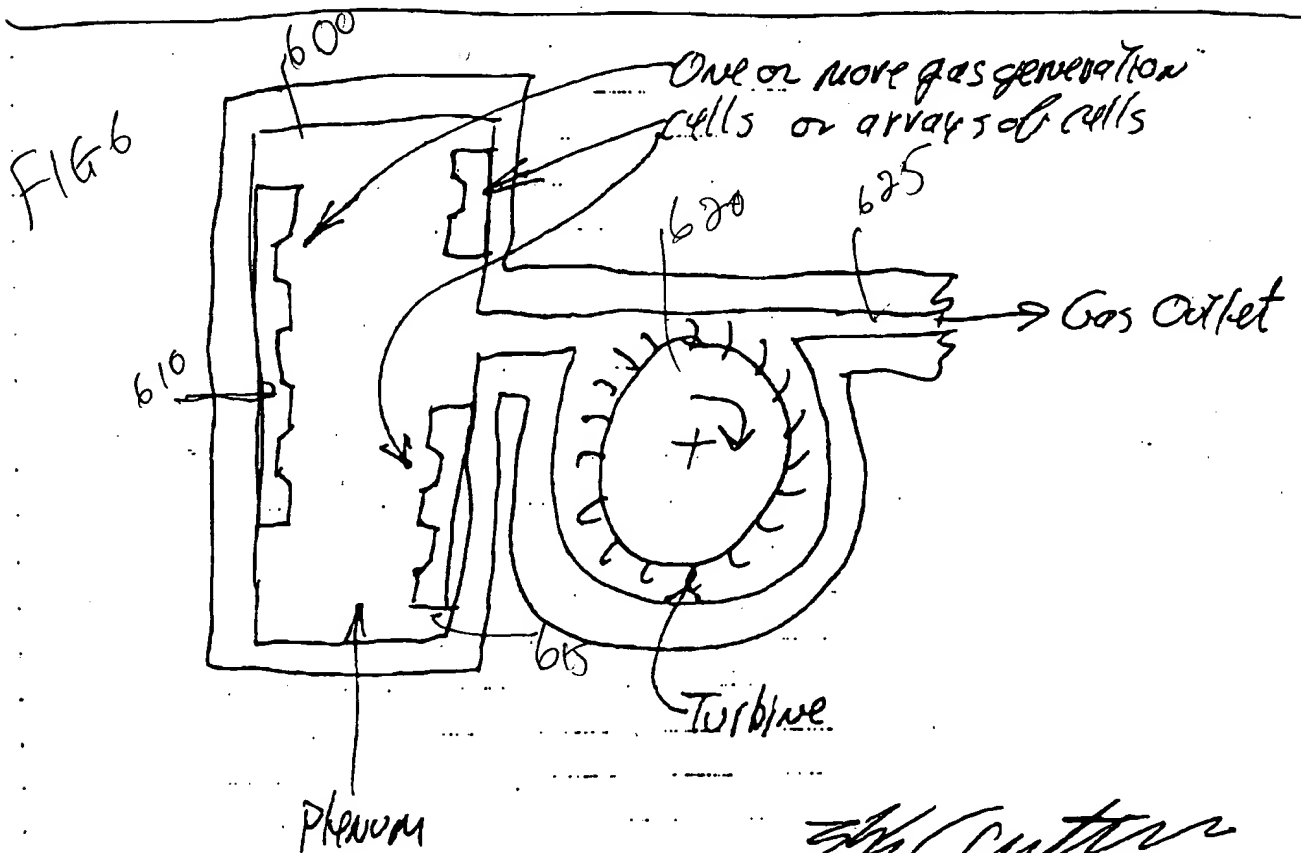 FIG 6
600
One or more gas generation
cells or arrays of cells
620
625
Gas Outlet
610
615
Turbine
Plenum